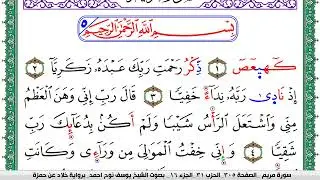 بِسْمِ اللَّهِ الرَّحْمَٰنِ الرَّحِيمِ
كٓهيعٓصٓ ١ ذِكْرُ رَحْمَتِ رَبِّكَ عَبْدَهُۥ زَكَرِيَّآءَ ٢
إِذْ نَادَىٰ رَبَّهُۥ نِدَآءً خَفِيًّا ٣ قَالَ رَبِّ إِنِّى وَهَنَ ٱلْعَظْمُ
مِنِّى وَٱشْتَعَلَ ٱلرَّأْسُ شَيْبًا وَلَمْ أَكُنۢ بِدُعَآئِكَ رَبِّ
شَقِيًّا ٤ وَإِنِّى خِفْتُ ٱلْمَوَٰلِىَ مِن وَرَآءِى وَكَانَتِ
سورة مريم الصفحة ٣٠٥ الحزب ٣١ الجزء ١٦ بصوت الشيخ يوسف نوح احمد برواية خلاد عن حمزة